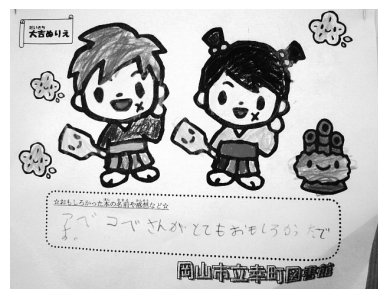 だいきち
大吉ぬりえ
☆おもしろかった本の名前や感想など☆
アベコベさんがとてもおもしろかったで
す。
岡山市立幸町図書館